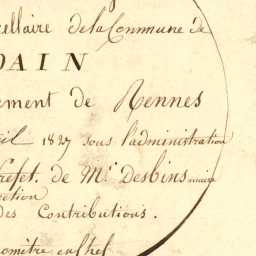 cellaire de la Commune de
DAIN
ement de Rennes
il 1827 sous l'administration
Préfet. de Mr. Desbins maire
ection
des Contributions.
omètre en chef